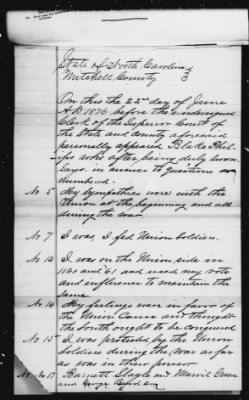 State of North Carolina
Mitchell County
On this the 22nd day of June
A.D. 1876 before the undersigned
Clerk of the Superior Court of
the State and County aforesaid
personally appeared Blake Phil-
ips who after being duly sworn
says in answer to questions as
numbered.
No 5 My sympathies were with the
Union at the beginning and all
during the war
No 7 I was, I fed Union Soldiers.
No 12 I was on the Union side in
1860 or 61 and used my vote
and influence to maintain the
same
No 14 My feelings were in favor of
the Union Cause and thought
the South ought to be conquered
No 15 I was protected by the Union
Soldiers during the war as far
as was in their power
No 17 Barnett Slagle and Marvil Green
and George